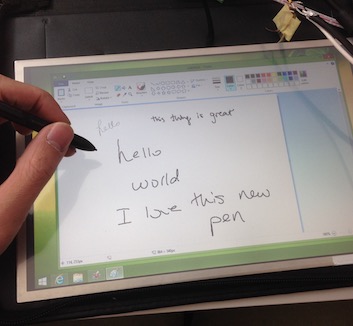 hello
this thing is great
hello
world
I love this new
pen